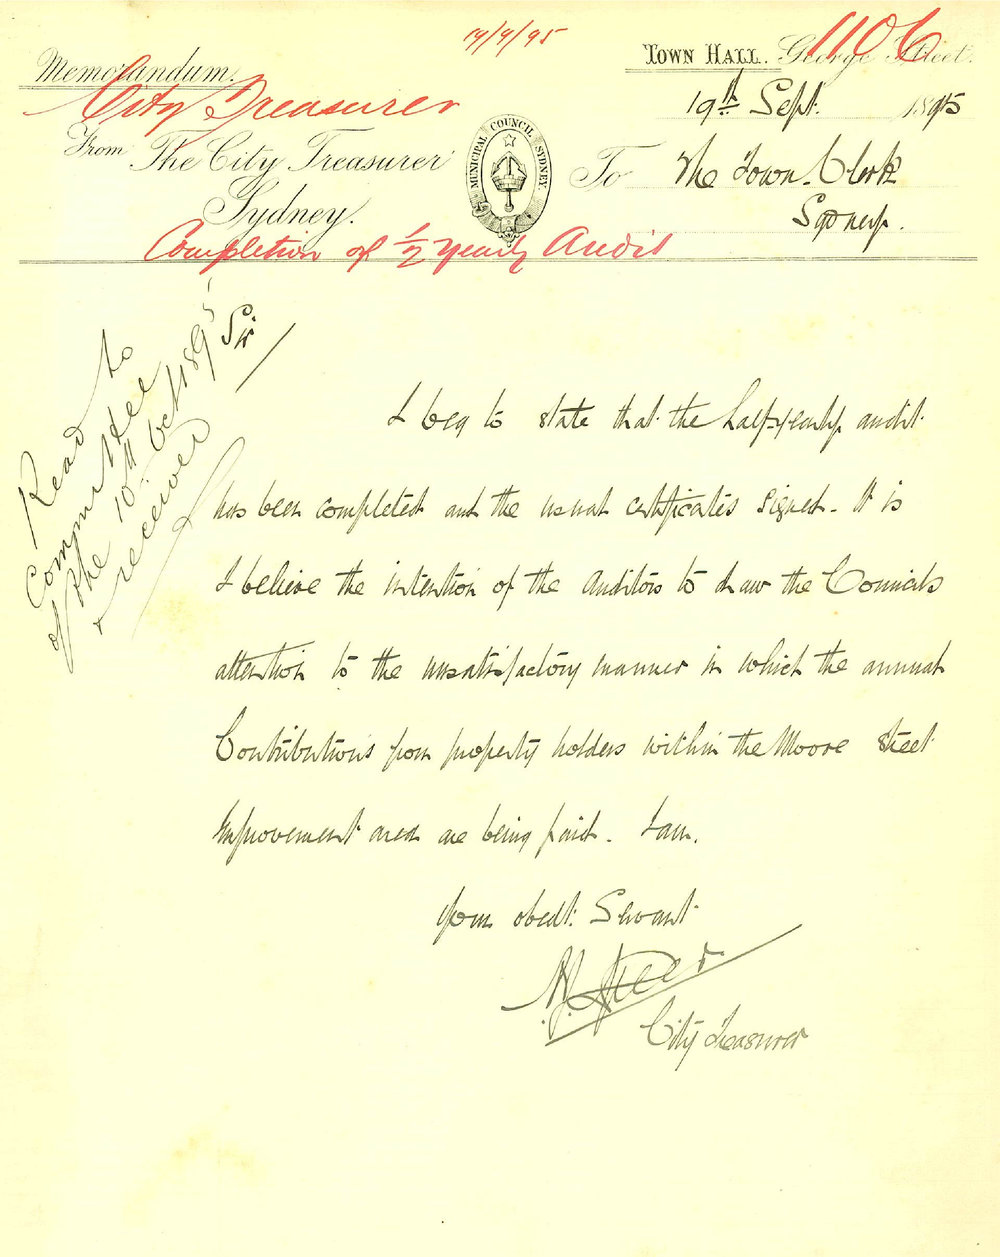 19/9/95
1106
Memorandum.
TOWN HALL. George Street.
City Treasurer
19th Sept. 1895
From The City Treasurer
MUNICIPAL COUNCIL SYDNEY
To The Town Clerk
Sydney.
Sydney.
Completion of 1/2 Yearly Audit
Read to
Committee
of the 10th Oct 1895
& received
Sir
I beg to state that the half-yearly audit
has been completed and the usual certificates signed. It is
I believe the intention of the Auditors to draw the Councils
attention to the unsatisfactory manner in which the annual
Contributions from property holders within the Moore Street
Improvement area are being paid. I am.
Your obedt. Servant
City Treasurer